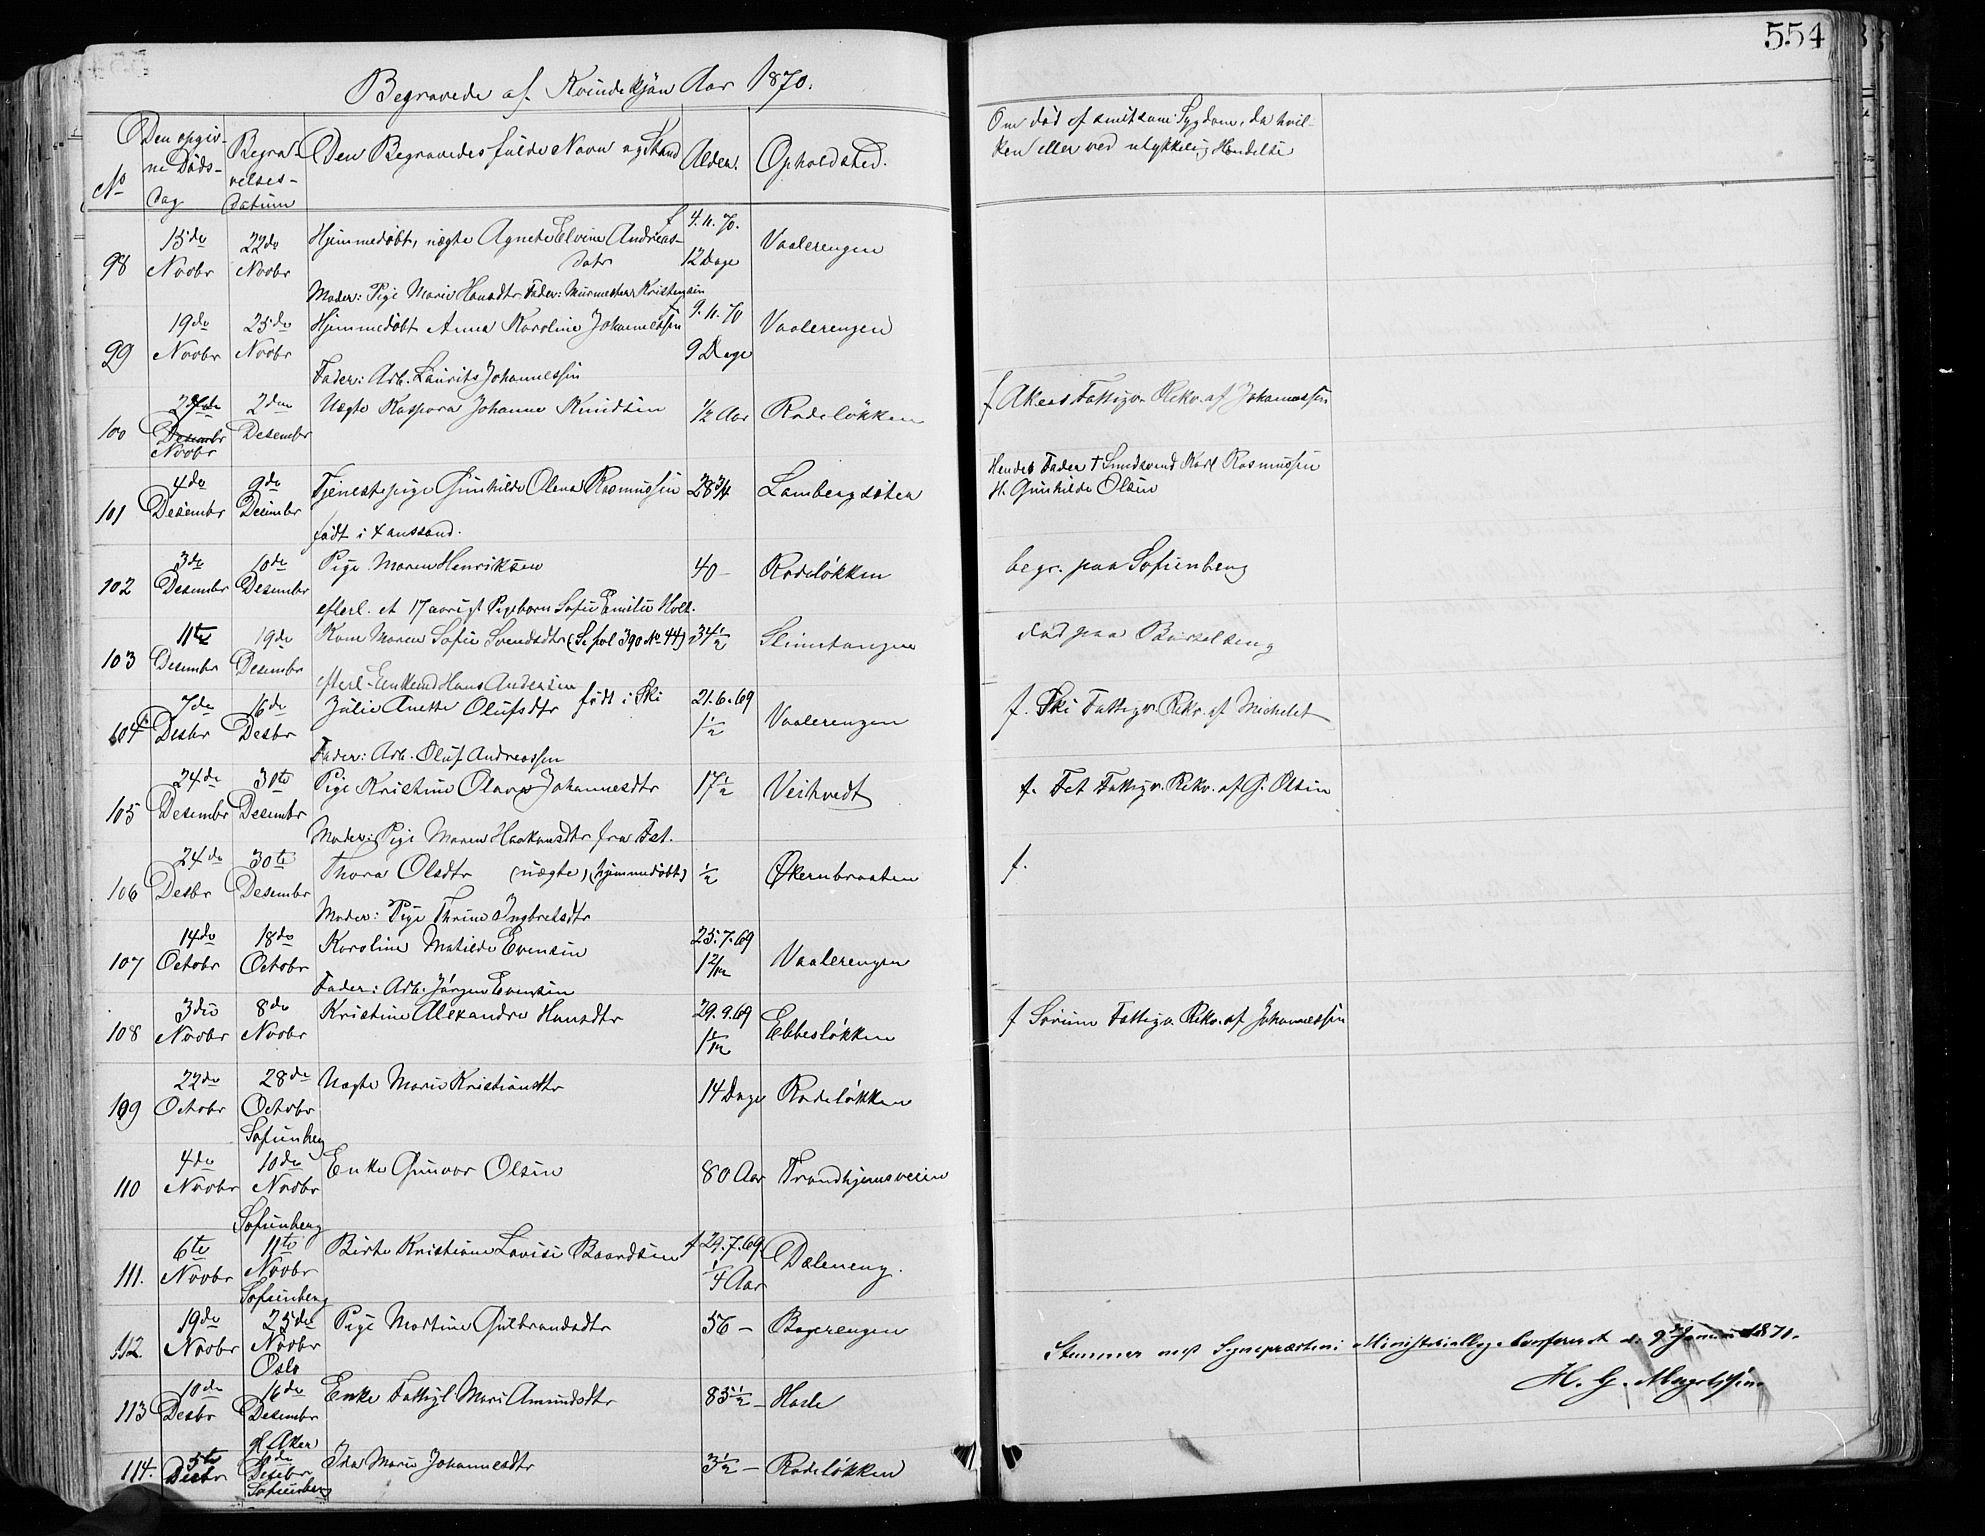 554
Begravede af Kvindekjön Aar 1870.
No
Den opgiv-
ne Döds-
dag
Begra-
velses-
datum
Den Begravedes fulde Navn og Stand
Alder.
Opholdsted.
Om död af smitsom Sygdom, da hvil-
ken eller ved ulykkelig Hendelse
98 15de Novbr 22de Novbr Hjemmedöbt, uægte Agnete Elvine Andreas-
datr f. 4.11.70. 12 Dage Vaalerengen
Moder: Pige Marie Hansdtr Fader: Murmester Kristensen
99 19de Novbr 25de Novbr Hjemmedöbt Anna Karoline Johannessen f 9.11.70 9 Dage Vaalerengen
Fader: Arb. Laurits Johannessen
100 Desembr Novbr 2den Desembr Uægte Kaspara Johanne Knudsen 1/2 Aar Rodelökken f Akers Fattigv. Rekv. af Johannessen
101 4de Desembr 9de Desembr Tjenestepige Gunhilde Olena Rasmussen 28 3/4 Lambergsæter
födt i
Hendes Fader † Karl Rasmussen
M. Gunhilde Olsen
102 3de Desembr 10de Desembr Pige Maren Henriksen 40 - Rodelökken begr. paa Sofienberg
efterl. et 17 aarigt Pigebarn Sofie Emilie Holt.
103 11te Desembr 19de Desembr Kone Maren Sofie Svendsdtr (Se fol 390 No 44) 34 1/2 Slimstangen död paa
efterl. Enkemd Hans Andersen
104 7de Desbr 16de Desbr Julie Anette Olufsdtr födt i Ski 21.6.69 1 1/2 Vaalerengen f. Ski Fattigv. Rekv. af Michelet
Fader: Arb. Oluf Andreassen
105 24de Desembr 30te Desembr Pige Kristine Olava Johannesdtr 17 1/2 Veitvedt f. Fet Fattigv. Rekv. af G. Olsen
Moder: Pige Maren Haakonsdtr fra Fet.
106 24de Desbr 30te Desembr Thora Olsdtr (uægte) (hjemmedöbt) 1/2 Økernbraaten f.
Moder: Pige Thrine Ingbretsdtr
107 14de Octobr 18de Octobr Karoline Matilde Evensen 25.7.69 1 2/12 Vaalerengen
Fader: Arb. Jörgen Evensen
108 3die Novbr 8de Novbr Kristine Alexandra Hansdtr 29.9.69 1 1/12 Ebbeslökken f Sörum Fattigv. Rekv. af Johannessen
109 22de Octobr 28de Octobr Sofienberg Uægte Marie Kristiansdtr 14 Dage Rodelökken
110 4de Novbr 10de Novbr Sofienberg Enke Gunvor Olsen 80 Aar Trondhjemsveien
111. 6te Novbr 11te Novbr Sofienberg Birte Kristiane Lovise Baardsen f 29.7.69. 1 1/4 Aar Dæleneng.
112 19de Novbr 25de Novbr Oslo Pige Martine Gulbrandsdtr 56 - Bagerengen
113 10de Desbr 16de Desembr gl Aker Enke Fattigl Mari Amundsdtr 85 1/2 - Hasle
114. 5te Desbr 10de Desbr. Sofienberg Ida Marie Johannesdtr 3 1/2 - Rodelökken
Stemmer med Sognepræstens Ministerialbog. Confereret d. 9de Januar 1871.
H. G.